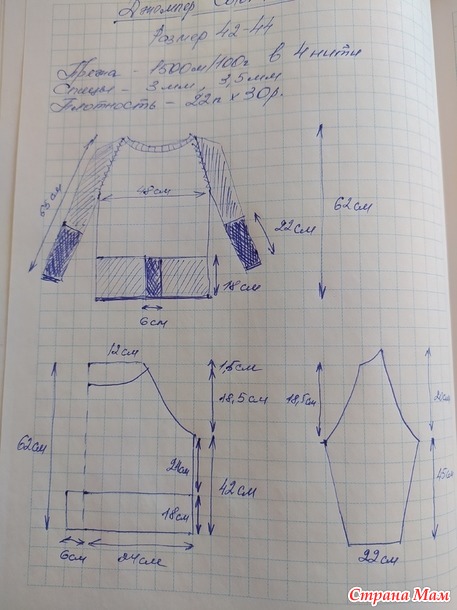 Джемпер
Размер 42-44
Пряжа - 1500м/100г в 4 нити
Спицы - 3 мм, 3,5мм
Плотность - 22п х 30р.
48см
22см
62см
18см
6см
12см
1,5см
18,5см
18,5см
62см
24см
42см
18см
45см
6см
24см
22см
Страна Мам